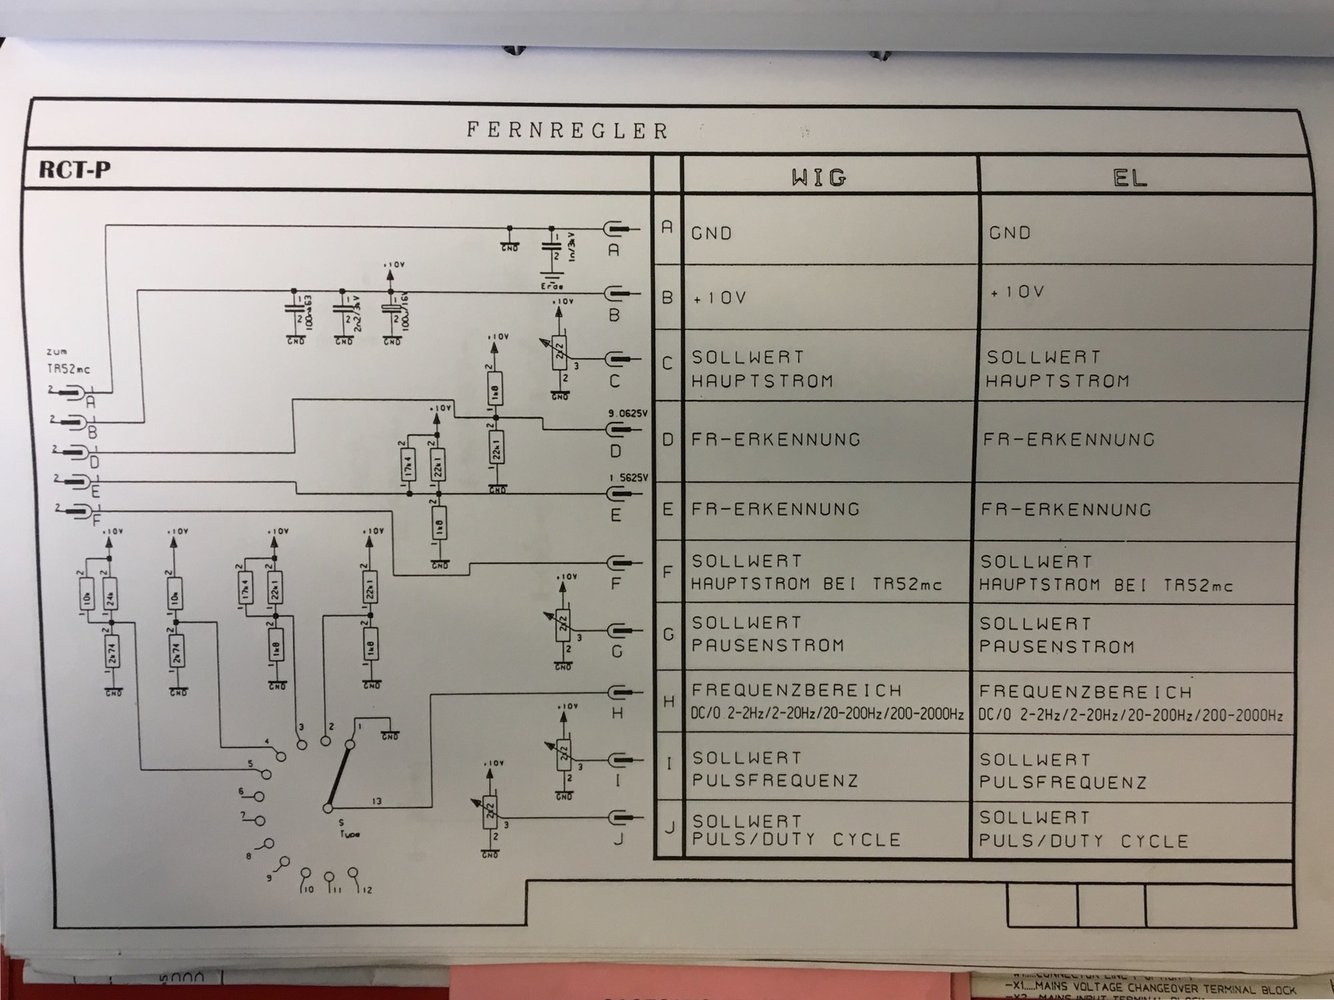 FERNREGLER
RCT-P
WIG
EL
A
GND
GND
B
+10V
+10V
C
SOLLWERT
HAUPTSTROM
SOLLWERT
HAUPTSTROM
D
FR-ERKENNUNG
FR-ERKENNUNG
E
FR-ERKENNUNG
FR-ERKENNUNG
F
SOLLWERT
HAUPTSTROM BEI TR52mc
SOLLWERT
HAUPTSTROM BEI TR52mc
G
SOLLWERT
PAUSENSTROM
SOLLWERT
PAUSENSTROM
H
FREQUENZBEREICH
DC/0.2-2Hz/2-20Hz/20-200Hz/200-2000Hz
FREQUENZBEREICH
DC/0 2-2Hz/2-20Hz/20-200Hz/200-2000Hz
I
SOLLWERT
PULSFREQUENZ
SOLLWERT
PULSFREQUENZ
J
SOLLWERT
PULS/DUTY CYCLE
SOLLWERT
PULS/DUTY CYCLE
GND
1
2
1n/3kV
Erde
A
+10V
1
2
1
2
2n2/3kV
1
2
GND
GND
GND
B
+10V
2k2
3
2
GND
C
zum
TR52mc
2
A
2
B
2
D
2
E
2
F
+10V
2
1k8
1
2
22k1
1
GND
9.0625V
D
+10V
2
17k4
1
2
22k1
1
2
1k8
1
GND
1.5625V
E
F
+10V
2
10k
1
2
24k
1
2
2k74
1
GND
+10V
2
10k
1
2
2k74
1
GND
+10V
2
17k4
1
2
22k1
1
2
1k8
1
GND
+10V
2
22k1
1
2
1k8
1
GND
+10V
2k2
3
2
GND
G
H
+10V
2k2
3
2
GND
I
+10V
2k2
3
2
GND
J
1
GND
2
3
4
5
6
7
8
9
10
11
12
13
S
Type
-X1....MAINS VOLTAGE CHANGEOVER TERMINAL BLOCK